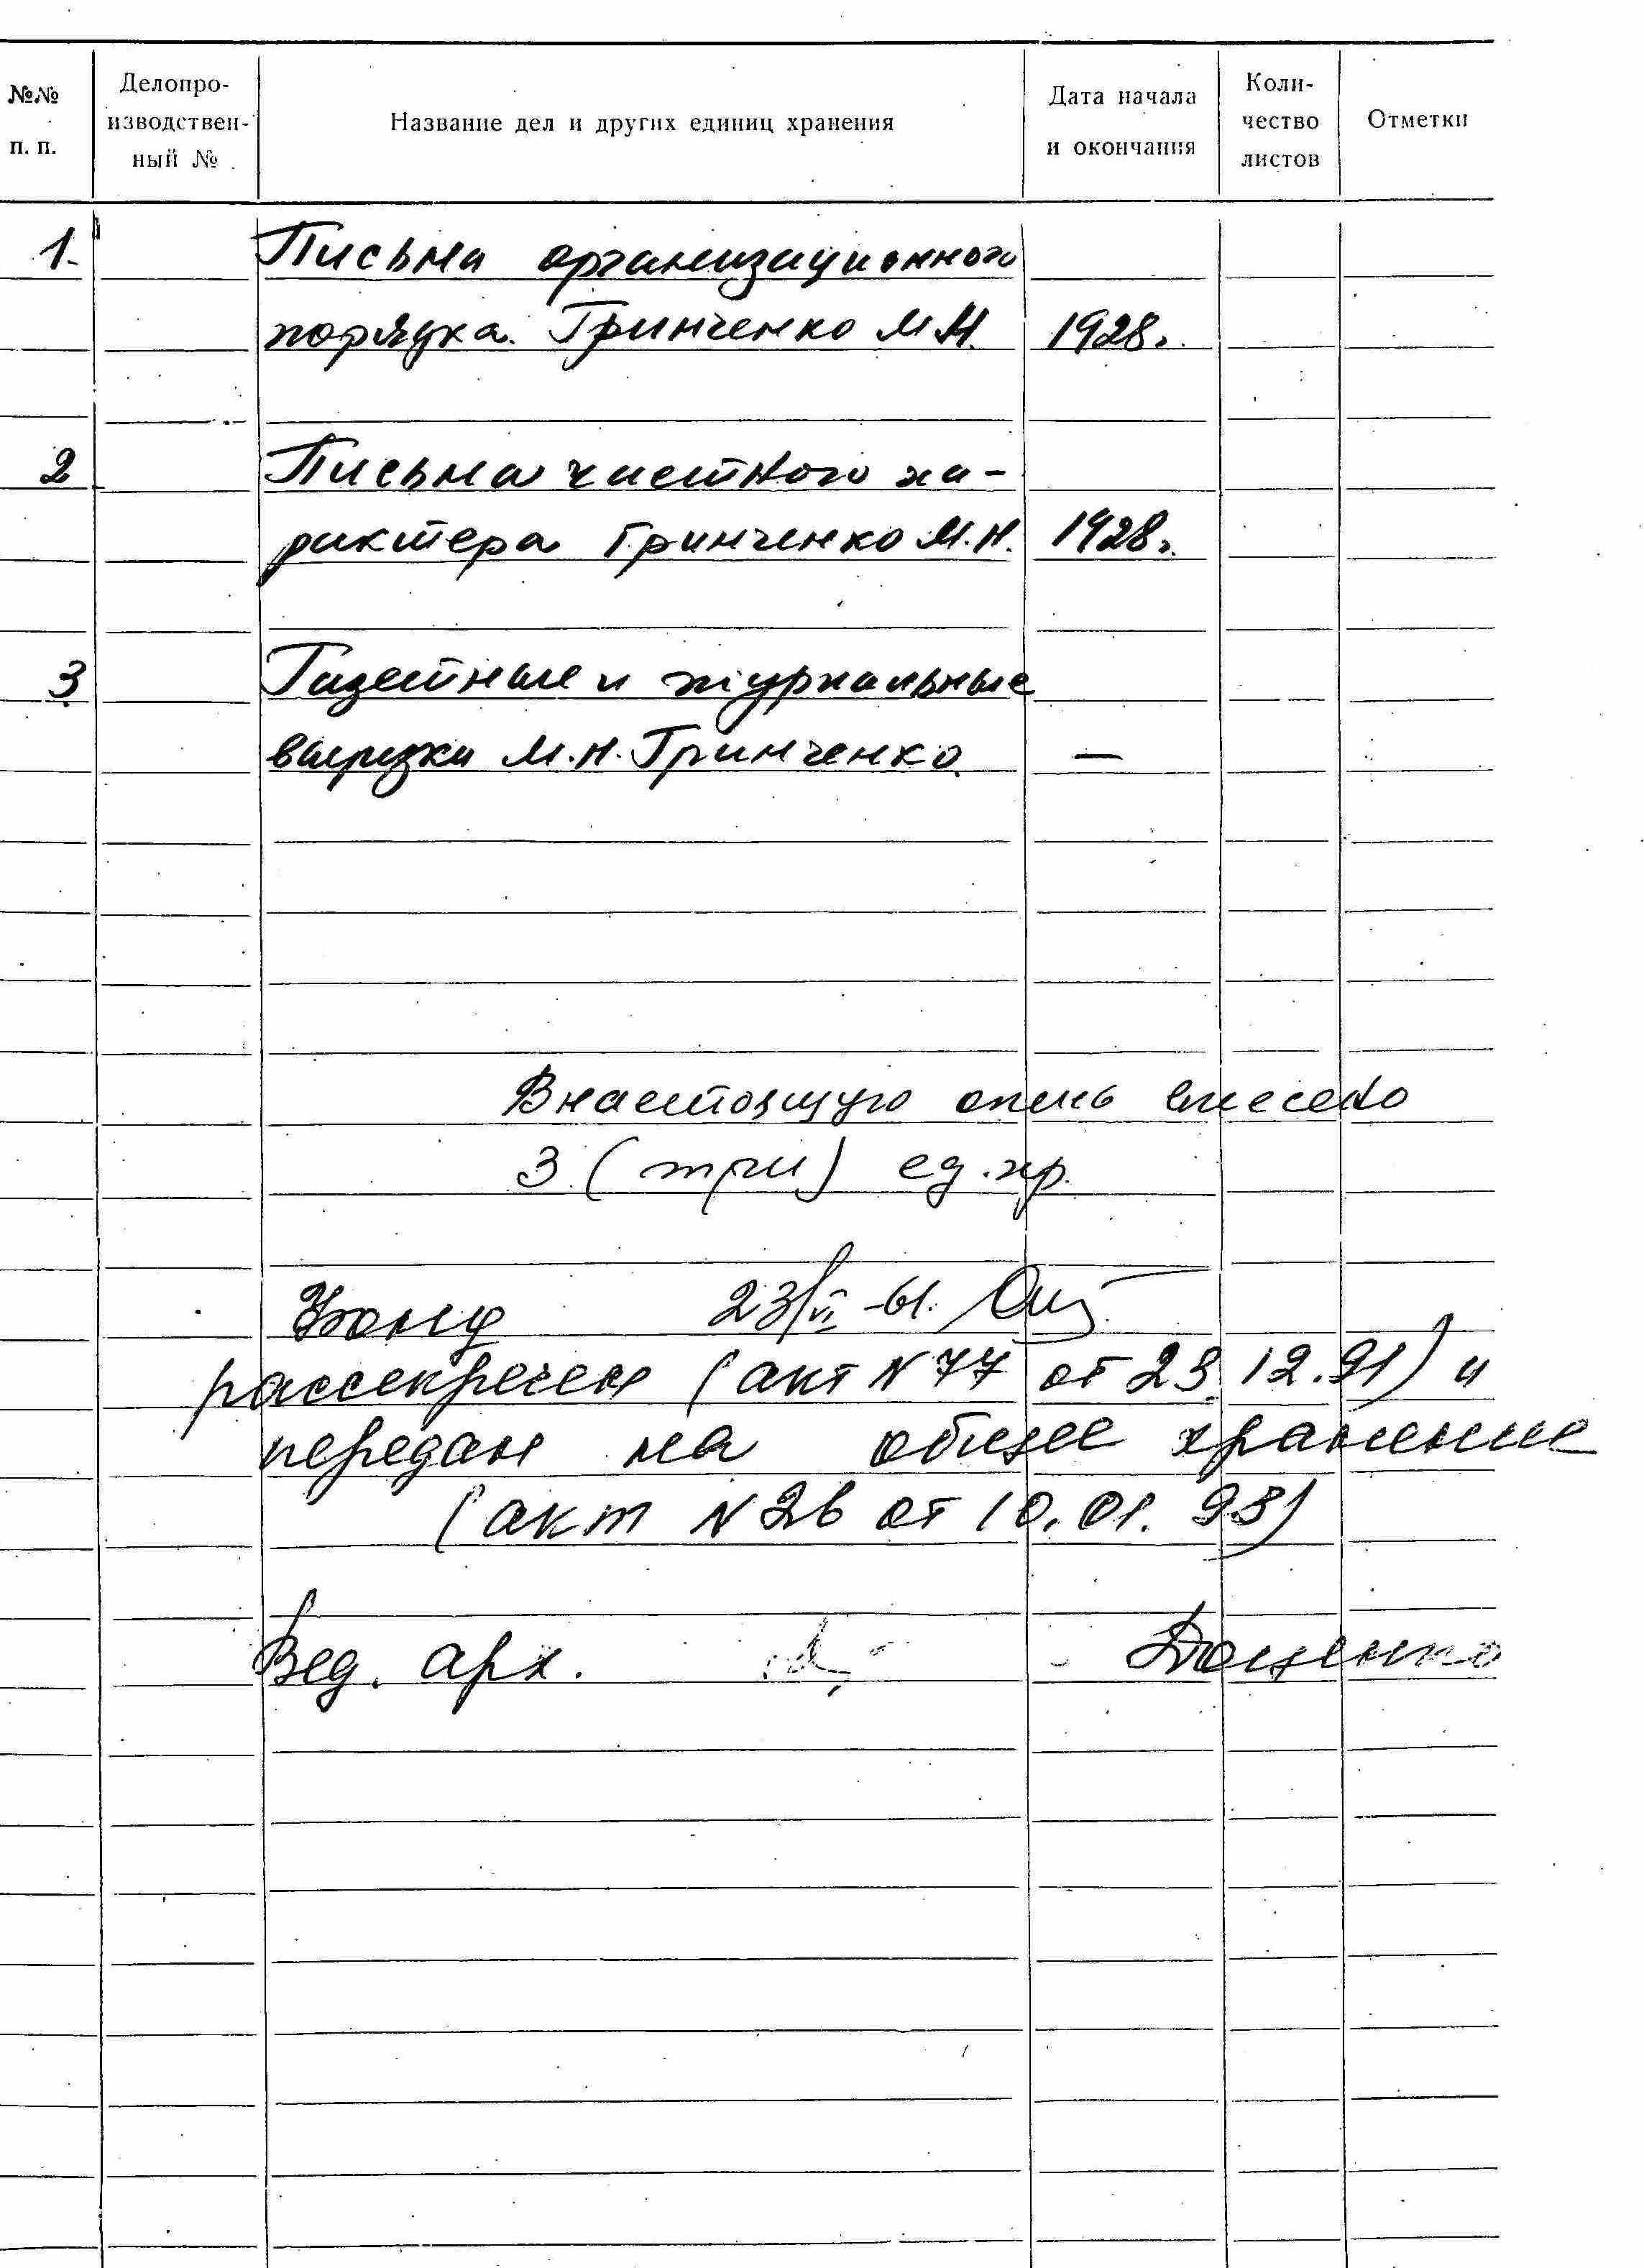 №№ п. п.
Делопро-
изводствен-
ный №
Название дел и других единиц хранения
Дата начала
и окончания
Коли-
чество
листов
Отметки
1. Письма организационного
порядка. Гринченко М Н. 1928г.
2 Письма частного ха-
рактера Гринченко М.Н. 1928г.
3 Газетные и журнальные
вырезки М.Н. Гринченко. —
В настоящую опись внесено
3 (три) ед. хр.
Фонд 23/VI-61.
рассекречен (акт N 77 от 23.12.91) и
передан на общее хранение
(акт N 2б от 10.01.93)
Вед. арх. Доценко